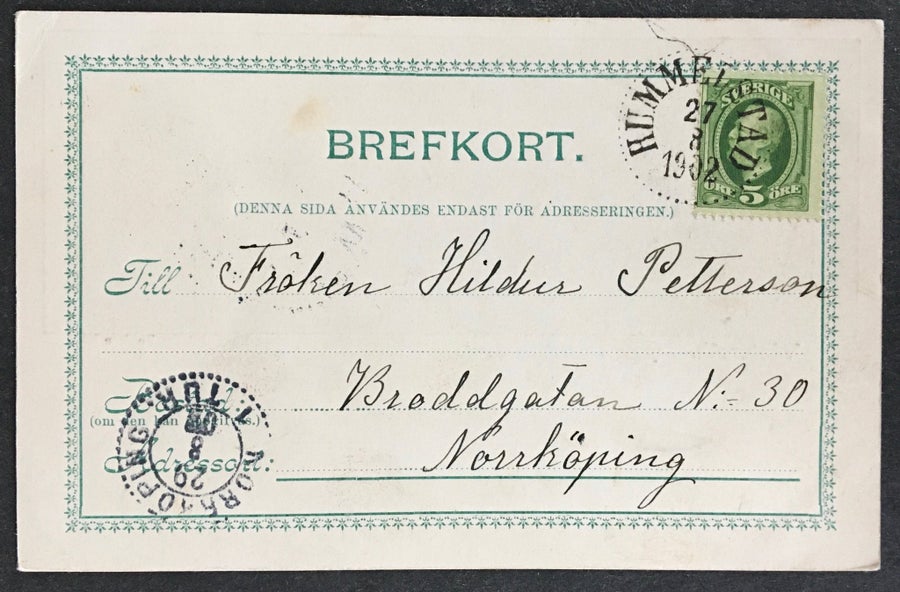 BREFKORT.
(DENNA SIDA ANVÄNDES ENDAST FÖR ADRESSERINGEN.)
SVERIGE
5
ÖRE ÖRE
HUMMELSTAD
27
8
1902
Till Fröken Hildur Petterson
Bostad:
(om den kan uppgifvas.)
Broddgatan N:- 30
Adressort: Norrköping
NORRKÖPING 1. TUR
29
8